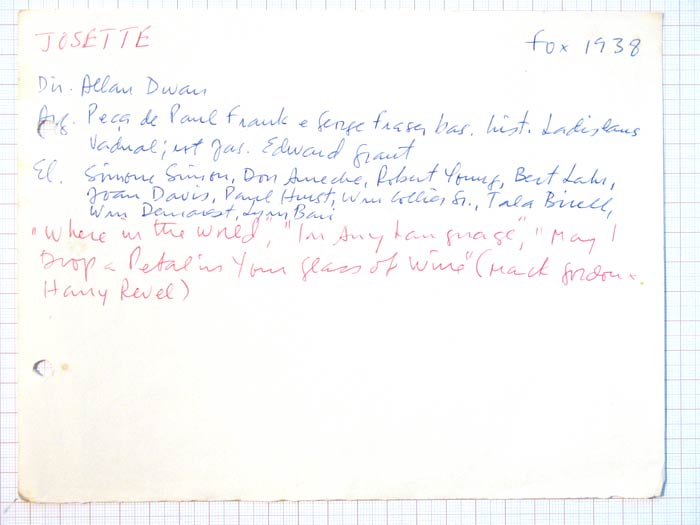 JOSETTE fox 1938
Dir. Allan Dwan
Arg. Peça de Paul Frank e George Fraser bas. hist. Ladislaus
Vadnai; rot Jas. Edward Grant
El. Simone Simon, Don Ameche, Robert Young, Bert Lahr,
Joan Davis, Paul Hurst, Wm Collier Sr., Tala Birell,
Wm Demarest, Lynn Bari
"Where in the World", "In Any Language", "May I
Drop a Petal in Your Glass of Wine" (Mack Gordon e
Harry Revel)